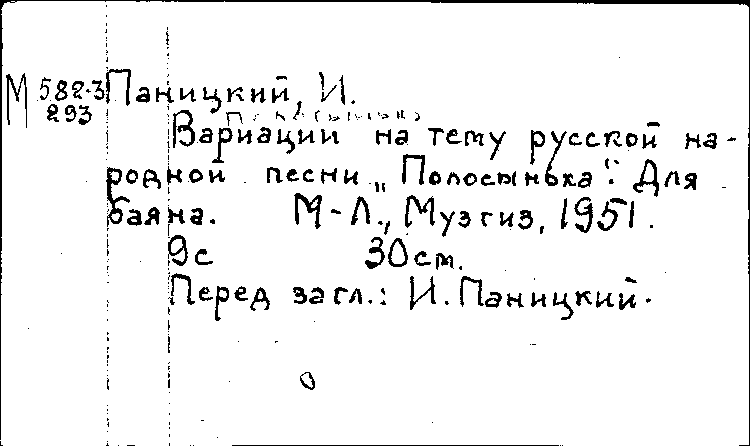 М 582-3 Паницкий, И.
293
Вариации на тему русской на-
родной песни „Полосынька". Для
баяна. М-Л., Музгиз, 1951.
9с 30см.
Перед загл.: И. Паницкий.